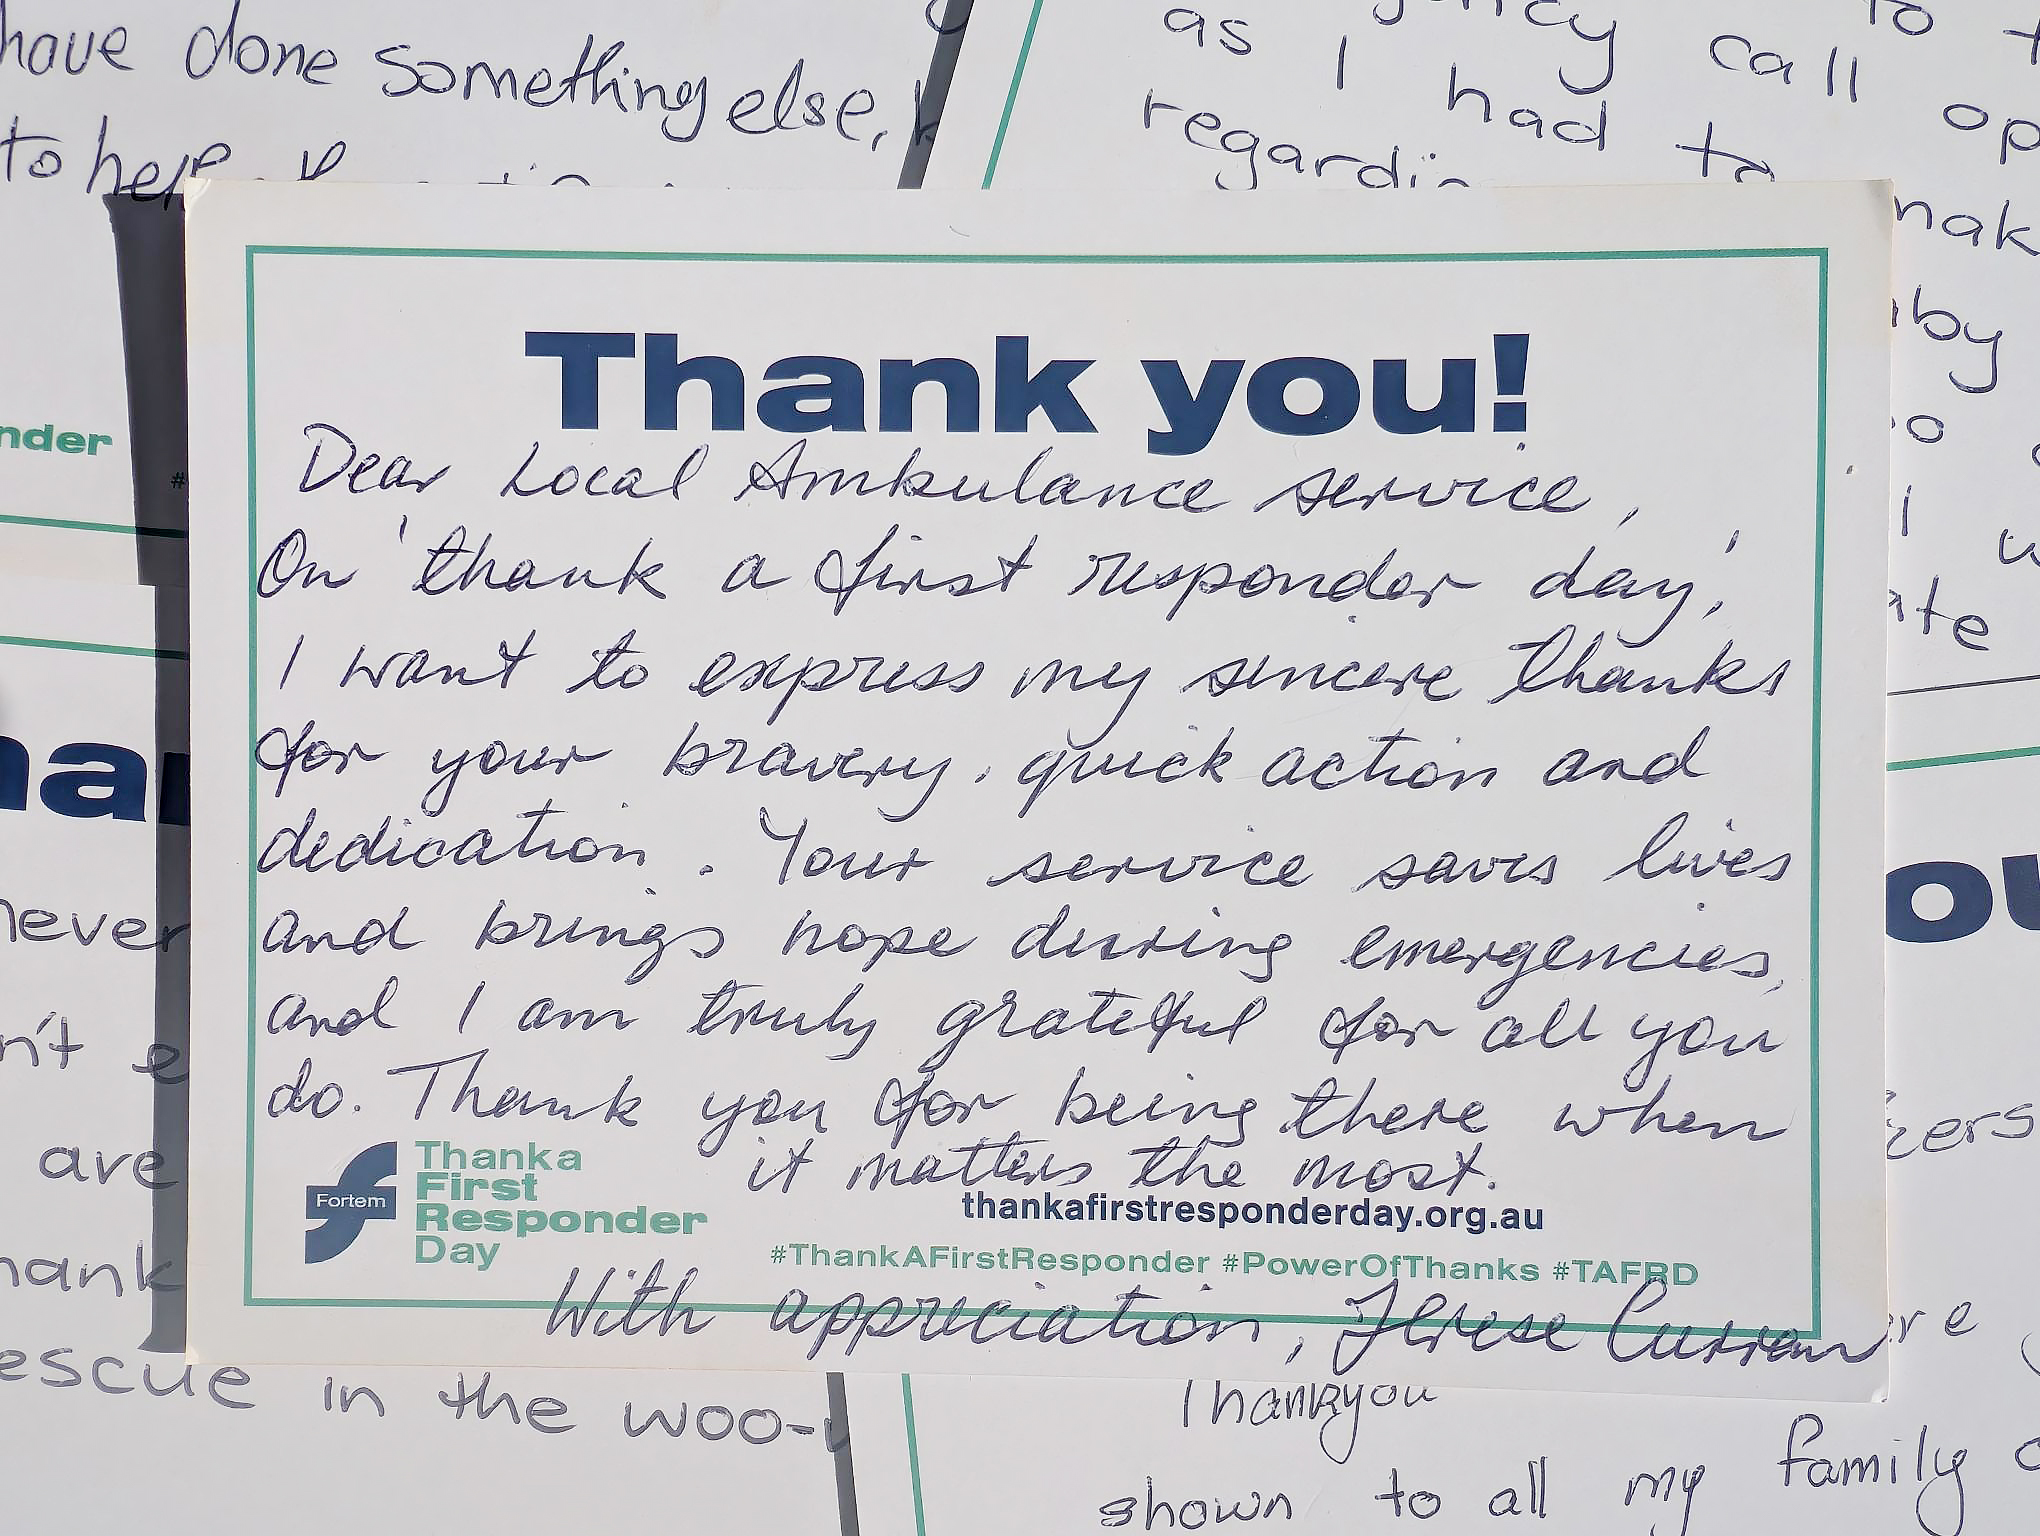 have done something else,
to help
as I had to
call
regarding
nder
Thank you!
Dear Local Ambulance service,
On 'thank a first responder day',
I want to express my sincere thanks
for your bravery, quick action and
dedication. Your service saves lives
and brings hope during emergencies,
and I am truly grateful for all you
do. Thank you for being there when
it matters the most.
Fortem
Thank a
First
Responder
Day
thankafirstresponderday.org.au
#ThankAFirstResponder #PowerOfThanks #TAFRD
With appreciation, Therese Curran
never
are
escue in the woo-
Thankyou
shown to all my family